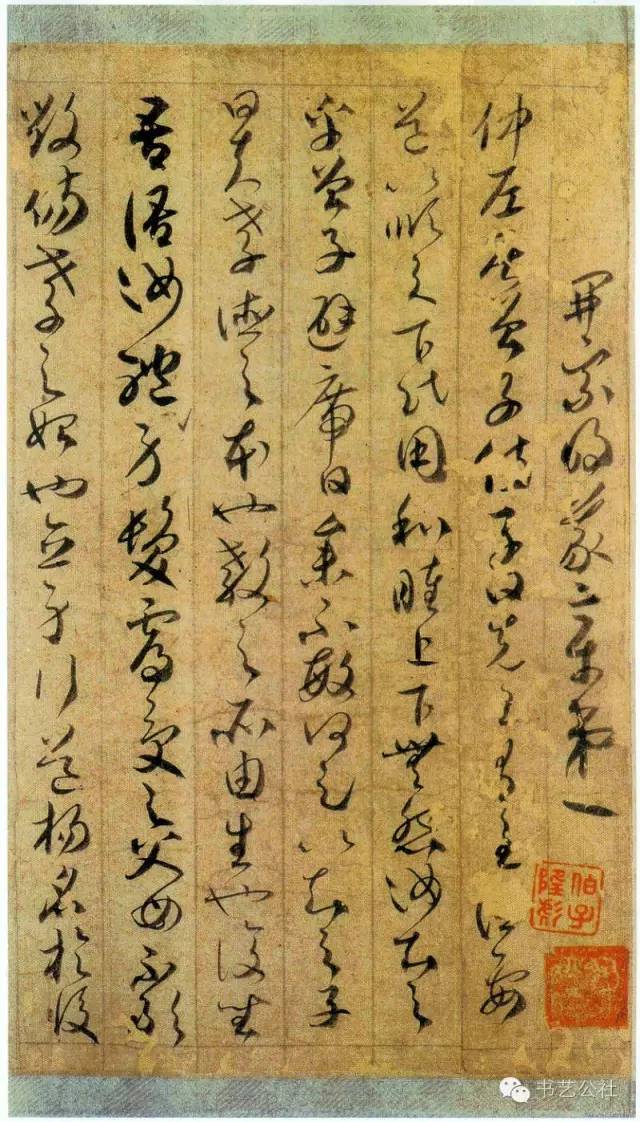 開宗明義章第一
仲尼居曾子侍子曰先王有至德要
道以順天下民用和睦上下無怨汝知之
乎曾子避席曰參不敏何足以知之子
曰夫孝德之本也教之所由生也復坐
吾語汝體身髮膚受之父母不敢
毀傷孝之始也立身行道揚名於後
书艺公社